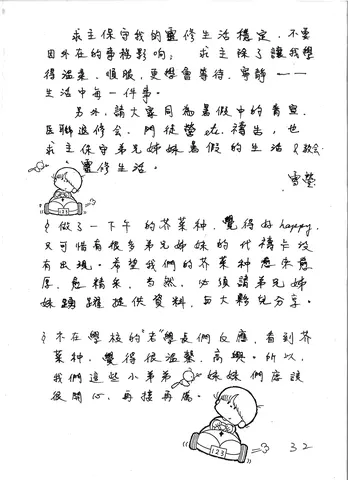 求主保守我的靈修生活穩定，不要
因外在的事務影响； 求主除了讓我學
得溫柔、順服，更學會等待、寧靜——
生活中每一件事。
另外，請大家同為暑假中的青宣、
医联退修会、門徒營etc.禱告，也
求主保守弟兄姊妹暑假的生活&教会、
靈修生活。
雪瑩
§做了一下午的芥菜种，覺得好happy，
又可惜有很多弟兄姊妹的代禱卡没
有出現。希望我們的芥菜种愈來愈
厚、愈精采，当然，必須請弟兄姊
妹踴躍提供資料，与大夥兒分享。
§不在學校的"老"學長們反應，看到芥
菜种，覺得很溫馨、高興。所以，
我們這些小弟弟 妹妹們应該
很開心，再接再厲。
123
123
32